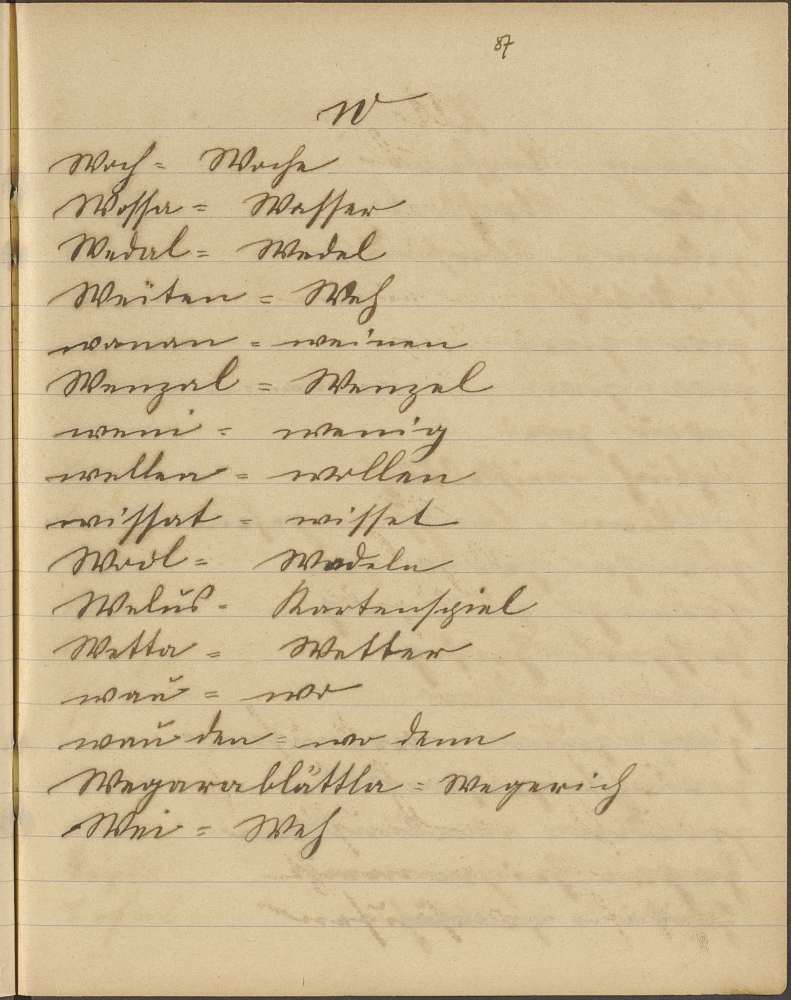 87
W
Woch = Woche
Wossa = Wasser
Wedal = Wedel
Weiten = Weh
wanan = weinen
Wenzal = Wenzel
weni = wenig
wellen = wollen
wissat = wisset
Wodl = Wadeln
Welus = Kartenspiel
Wetta = Wetter
wau = wo
wau den = wo denn
Wegarablättla = Wegerich
Wei = Weh